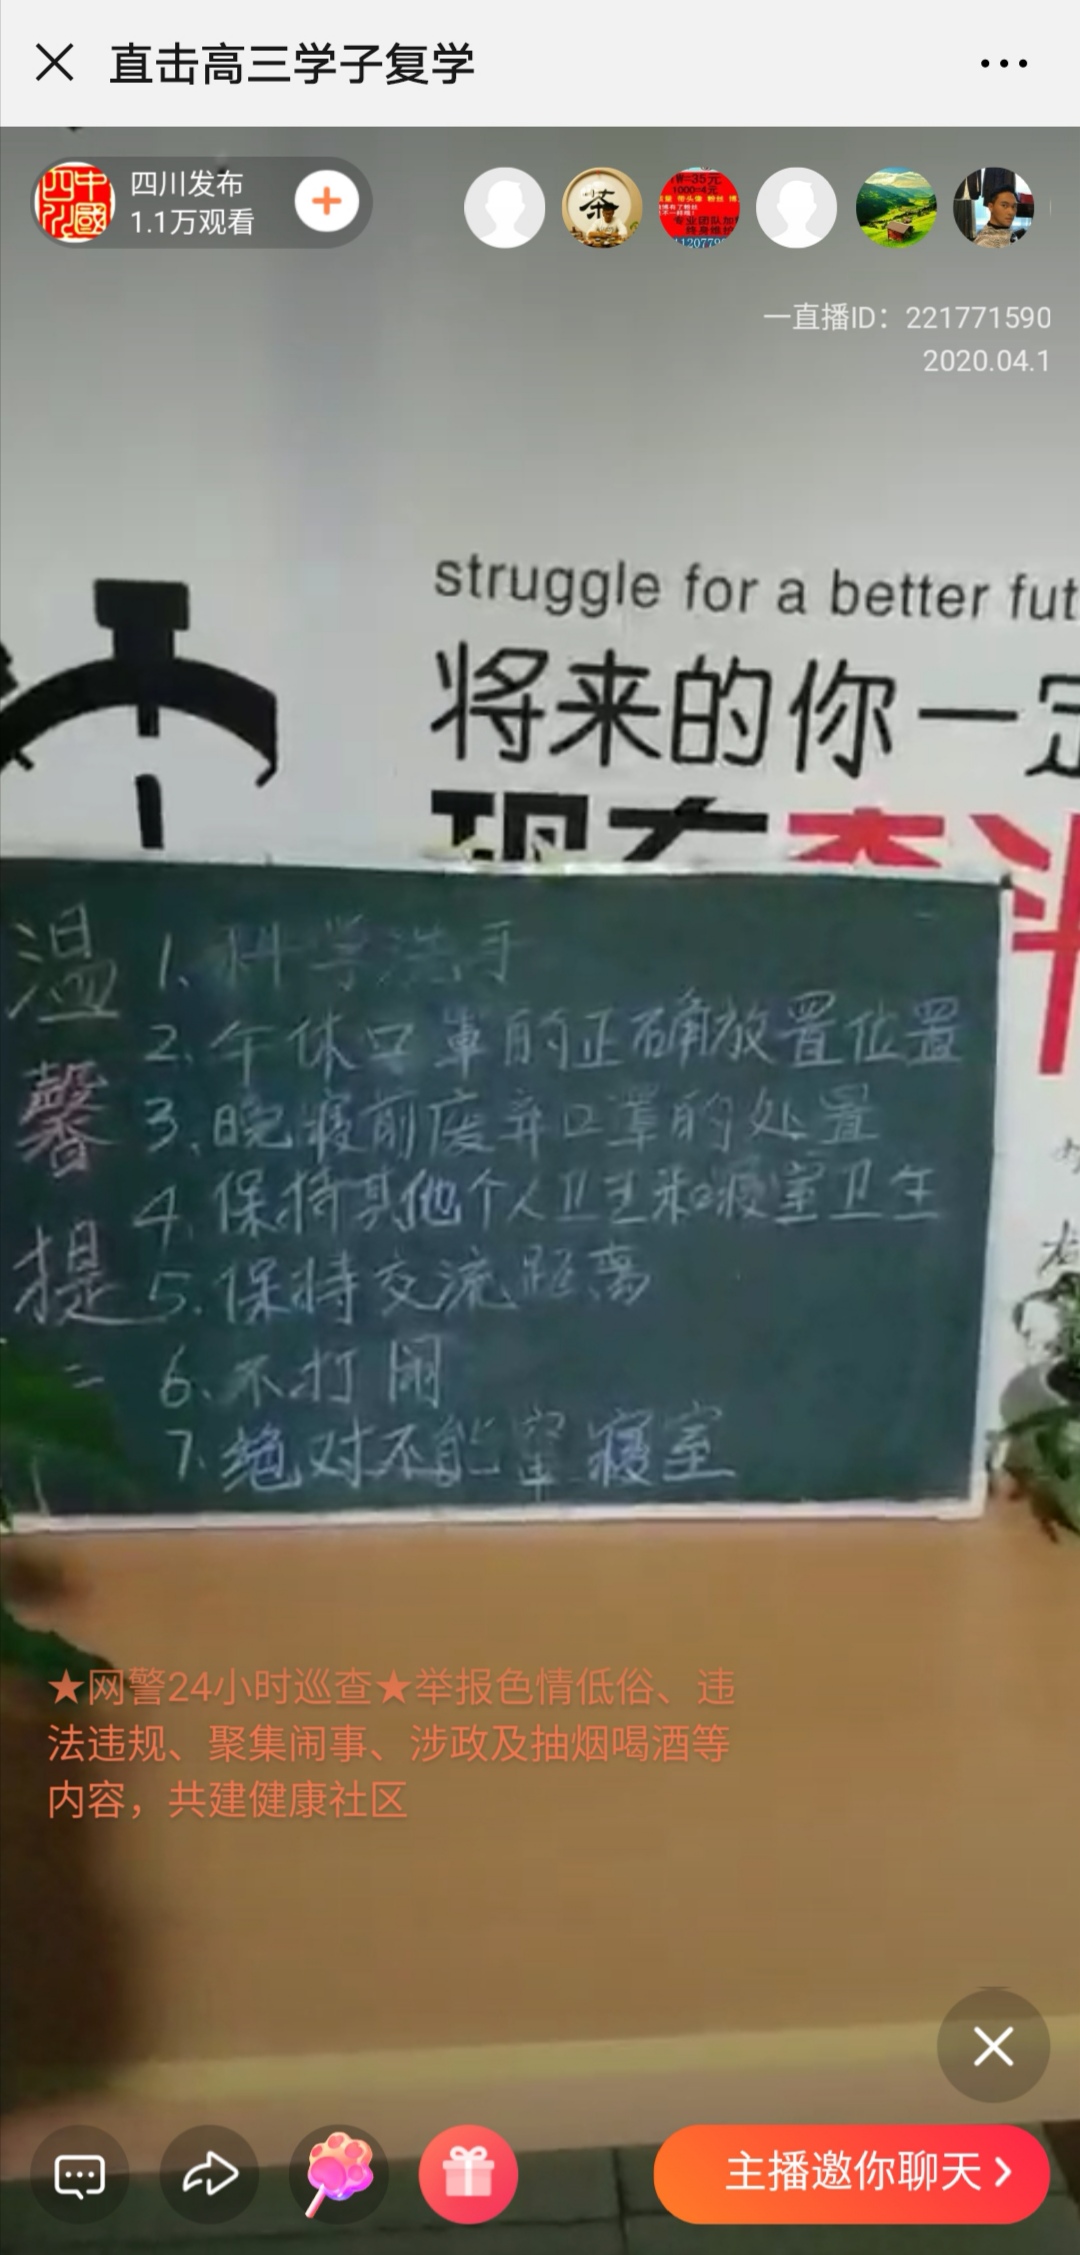 直击高三学子复学
四川发布
1.1万观看
一直播ID：221771590
2020.04.1
struggle for a better fut
将来的你一定
现在奋斗
温馨提
1、科学洗手
2、午休口罩的正确放置位置
3、晚寝前废弃口罩的处置
4、保持其他个人卫生和寝室卫生
5.保持交流距离
6、不打闹
7.绝对不能窜寝室
★网警24小时巡查★举报色情低俗、违
法违规、聚集闹事、涉政及抽烟喝酒等
内容，共建健康社区
主播邀你聊天